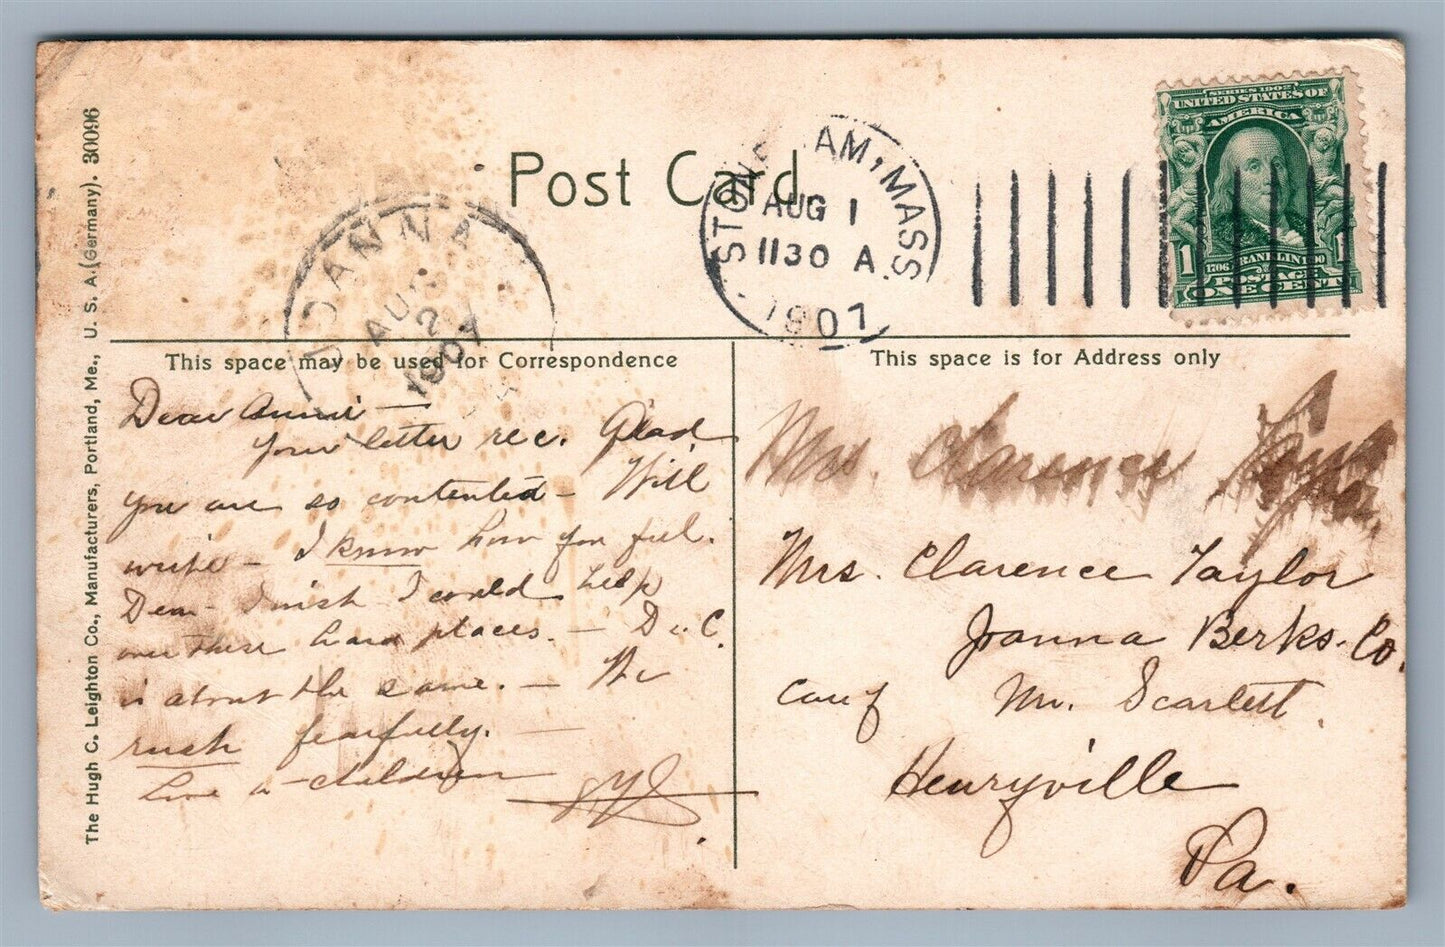 The Hugh C. Leighton Co., Manufacturers, Portland, Me., U. S. A. (Germany). 30096
Post Card
JOANNA
AUG
2
1907
AM, MASS
AUG 1
1130 A
1907
SERIES 1902
UNITED STATES OF
AMERICA
1 1
1706 FRANKLIN 1790
POSTAGE
ONE CENT
This space may be used for Correspondence
Dear Annie —
Your letter rec. Glad
you are so contented — Will
write — I know how you feel.
Dear I wish I could help
over these hard places. — D. C.
is about the same. — We
rush fearfully. —
Love to children
This space is for Address only
Mrs. Clarence Taylor
Mrs. Clarence Taylor
Joanna Berks. Co.
Care of Mr. Scarlett.
Henryville
Pa.